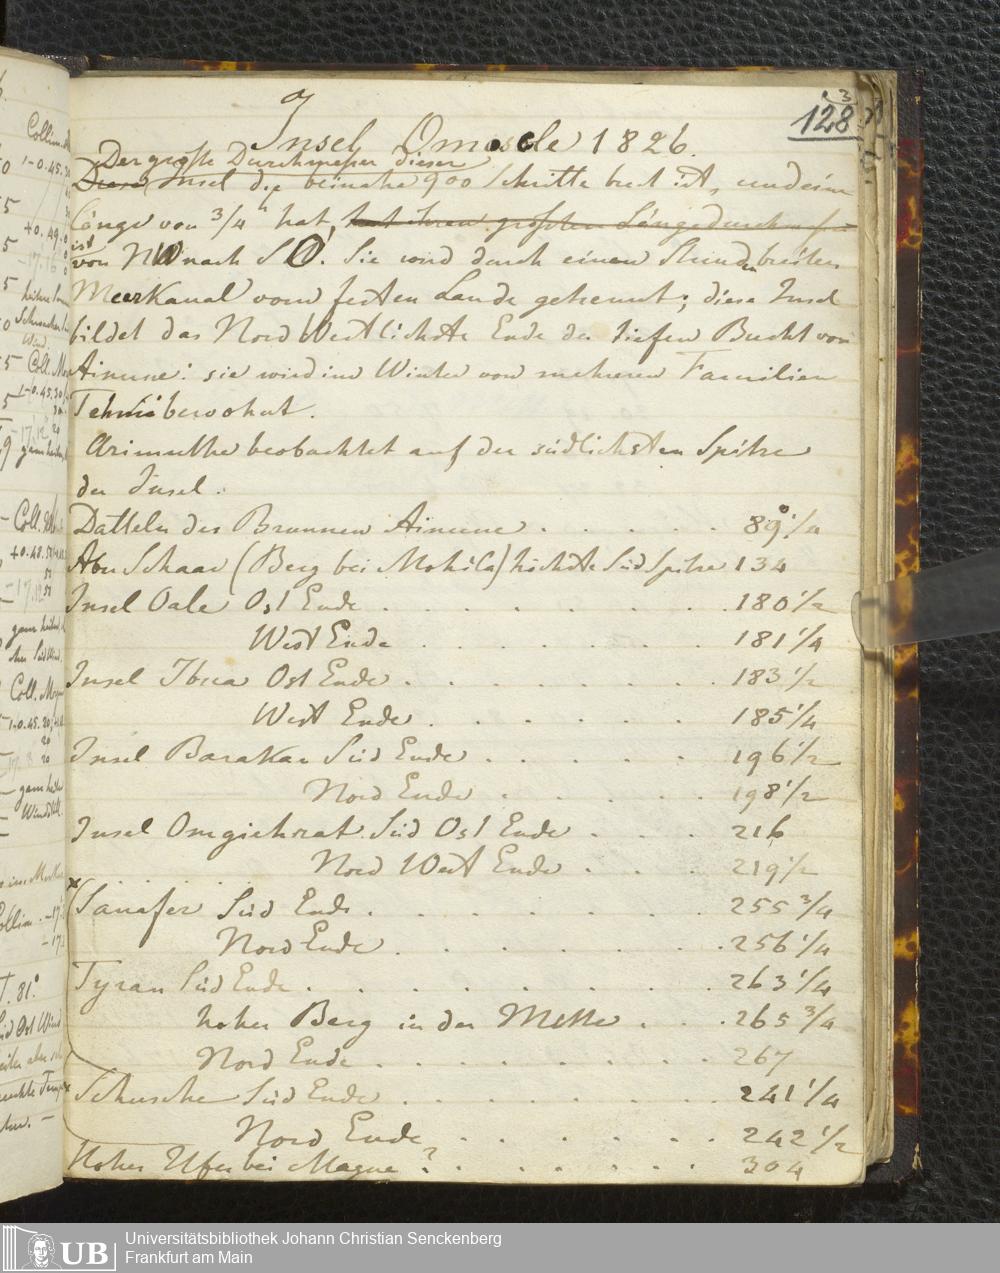 3
128
Insel Omosele 1826.
Der größte Durchmesser dieser
Diese Insel die beinahe 900 Schritte breit ist, und eine
Länge von 3/4 h hat, hat ihren größten Längedurchmesser
ist
von NW nach SO. Sie wird durch einen Stunden breiten
Meerkanal vom festen Lande getrennt; diese Insel
bildet das Nord Westlichste Ende der tiefen Bucht von
Ainune: sie wird im Winter von mehreren Familien
Tehmi bewohnt.
Azimuthe beobachtet auf der südlichsten Spitze
der Insel.
Datteln des Brunnen Ainune . . . . . 89° 1/4
Abu Schaar (Berg bei Mohila) höchste Süd Spitze 134
Insel Oale Ost Ende . . . . . . . . . 180 1/2
West Ende . . . . . . . . 181 1/4
Insel Ibua Ost Ende . . . . . . . . 183 1/2
West Ende . . . . . . . 185 1/4
Insel Barakan Süd Ende . . . . . . 196 1/2
Nord Ende . . . . . . 198 1/2
Insel Omgiehrat Süd Ost Ende . . . . 216
Nord West Ende . . . . 219 1/2
x Sanafer Süd Ende . . . . . . . . 255 3/4
Nord Ende . . . . . . . . 256 1/4
Tyran Süd Ende . . . . . . . . . 263 1/4
hoher Berg in der Mitte . . . 265 3/4
Nord Ende . . . . . . . . 267
x Schusche Süd Ende . . . . . . . . 241 1/4
Nord Ende . . . . . . . 242 1/2
Hohes Ufer bei Magne ? . . . . . . 304
UB
Universitätsbibliothek Johann Christian Senckenberg
Frankfurt am Main